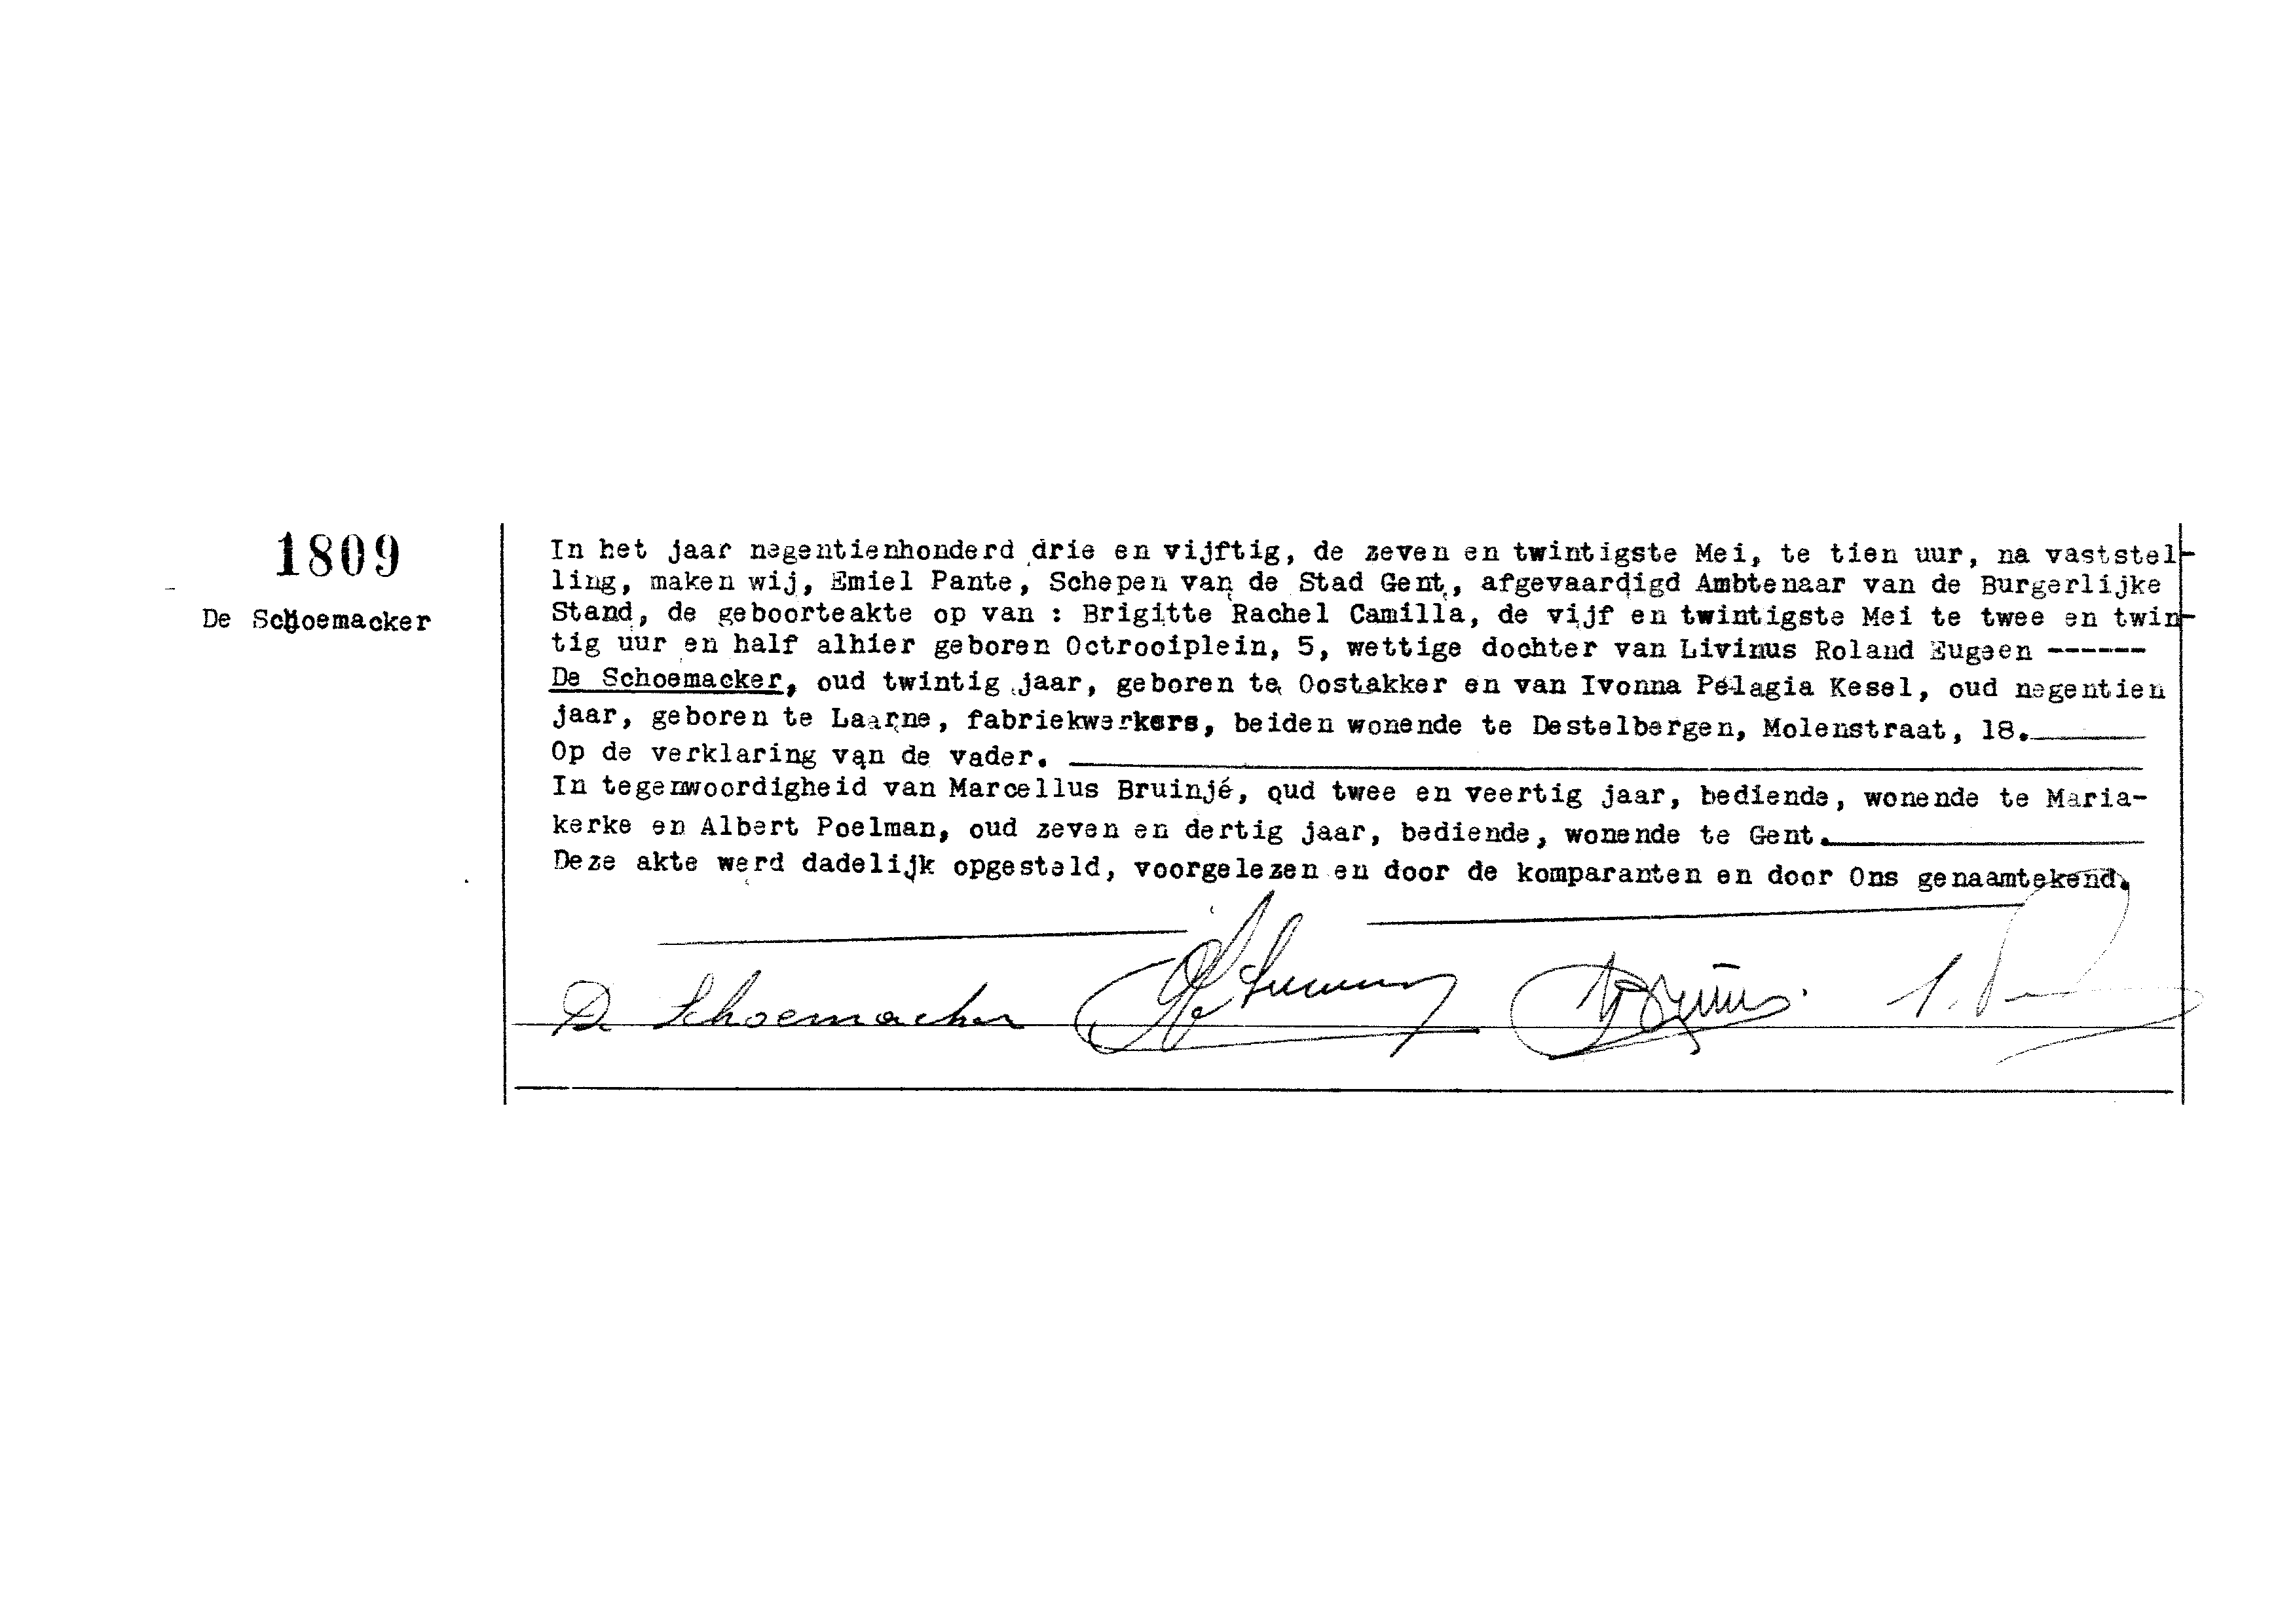 1809
De Schoemacker
In het jaar negentienhonderd drie en vijftig, de zeven en twintigste Mei, te tien uur, na vaststel-
ling, maken wij, Emiel Pante, Schepen van de Stad Gent, afgevaardigd Ambtenaar van de Burgerlijke
Stand, de geboorteakte op van : Brigitte Rachel Camilla, de vijf en twintigste Mei te twee en twin-
tig uur en half alhier geboren Octrooiplein, 5, wettige dochter van Livinus Roland Eugeen ------
De Schoemacker, oud twintig jaar, geboren te Oostakker en van Ivonna Pélagia Kesel, oud negentien
jaar, geboren te Laarne, fabriekwerkers, beiden wonende te Destelbergen, Molenstraat, 18.
Op de verklaring van de vader.
In tegenwoordigheid van Marcellus Bruinjé, oud twee en veertig jaar, bediende, wonende te Maria-
kerke en Albert Poelman, oud zeven en dertig jaar, bediende, wonende te Gent.
Deze akte werd dadelijk opgesteld, voorgelezen en door de komparanten en door Ons genaamtekend.
De Schoemacker